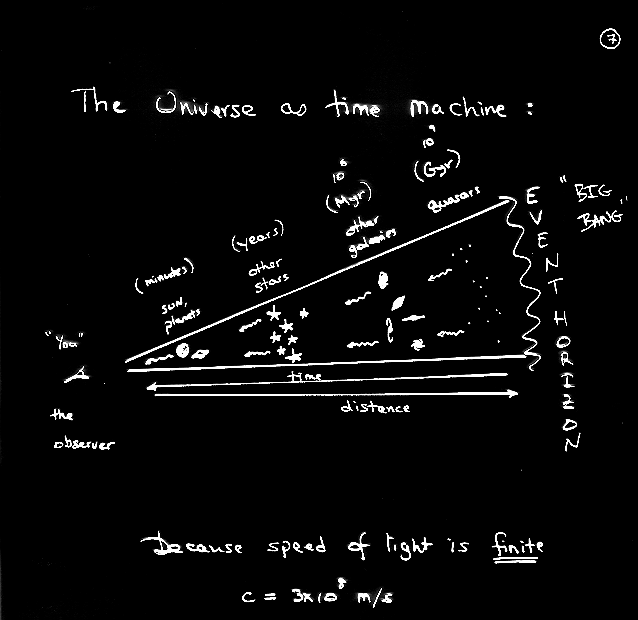 7
The Universe as time machine :
10⁶
(Myr)
other
galaxies
10⁹
(Gyr)
quasars
(years)
other
stars
(minutes)
sun,
planets
"You"
the
observer
EVENT HORIZON
"BIG
BANG"
time
distance
Because speed of light is finite
c = 3x10⁸ m/s